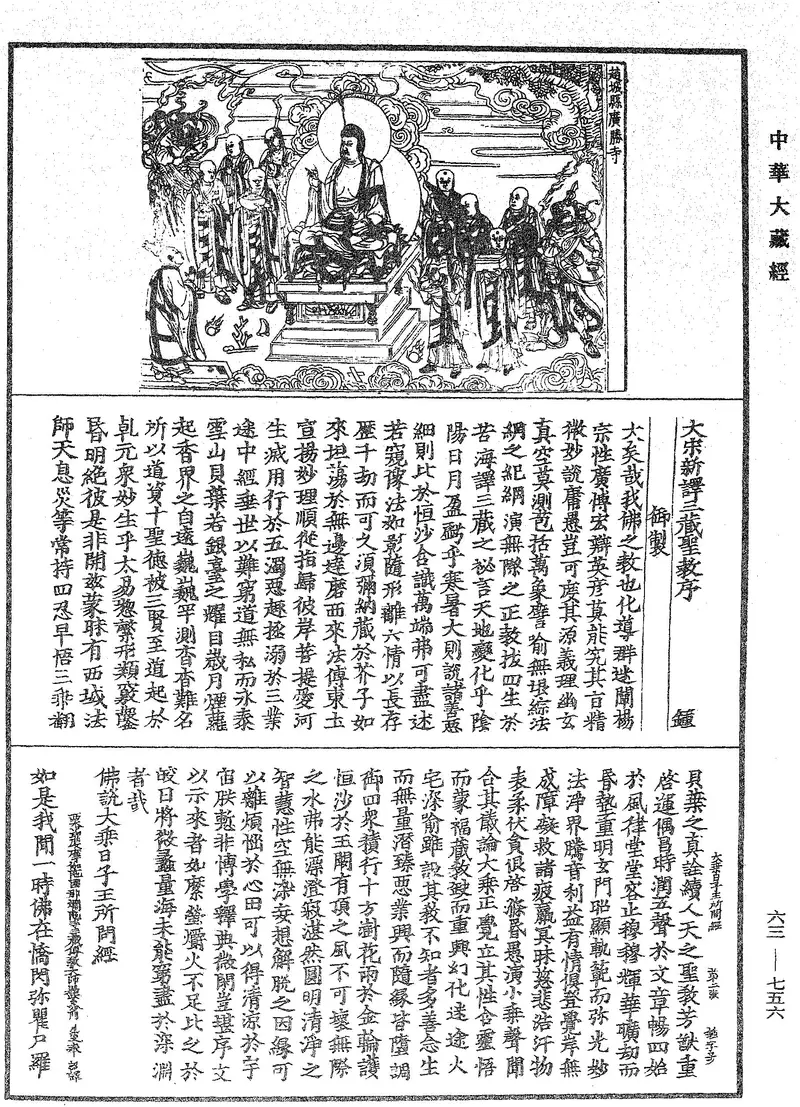 中華大藏經
六三—七五六
趙城縣廣勝寺
大宋新譯三藏聖教序　鍾
御製
大矣哉我佛之教也化導群迷闡揚
宗性廣博宏辯英彥莫能究其旨精
微妙說庸愚豈可度其源義理幽玄
真空莫測苞括萬象譬喻無垠綜法
網之紀綱演無際之正教拔四生於
苦海譯三藏之秘言天地變化乎陰
陽日月盈虧乎寒暑大則說諸善惡
細則比於恒沙含識萬端弗可盡述
若窺像法如影隨形離六情以長存
歷千劫而可久須彌納藏於芥子如
來坦蕩於無邊達磨西來法傳東土
宣揚妙理順從指歸彼岸菩提愛河
生滅用行於五濁惡趣拯溺於三業
途中經垂世以難窮道無私而永泰
雪山貝葉若銀臺之耀日歲月煙蘿
起香界之自遠巍巍罕測杳杳難名
所以道資十聖德被三賢至道起於
乹元衆妙生乎太易揔繁形類竅鑿
昏明絕彼是非開兹蒙昧有西域法
師天息災等常持四忍早悟三乘翻
貝葉之真詮續人天之聖教芳猷重
啓運偶昌時潤五聲於文章暢四始
於風律堂堂容止穆穆輝華曠劫而
昏墊重明玄門昭顯軌範而弥光妙
法淨界騰音利益有情俱登覺岸無
成障礙救諸疲羸冥昧慈悲浩汗物
表柔伏貪很啓滌昏愚演小乘聲聞
合其儀論大乘正覺立其性含靈悟
而蒙福藏教缺而重興幻化迷途火
宅深喻雖設其教不知者多善念生
而無量潛臻惡業興而隨緣皆墮調
御四衆積行十方澍花雨於金輪護
恒沙於玉闕有頂之風不可壞無際
之水弗能漂澄寂湛然圓明清淨之
智慧性空無染妄想解脫之因緣可
以離煩惱於心田可以得清凉於宇
宙朕慙非博學釋典微閑豈堪序文
以示來者如縻螢爝火不足比之於
皎日將微蠡量海未能窮盡於深淵
者哉
佛說大乘日子王所問經
如是我聞一時佛在憍閃弥瞿尸羅